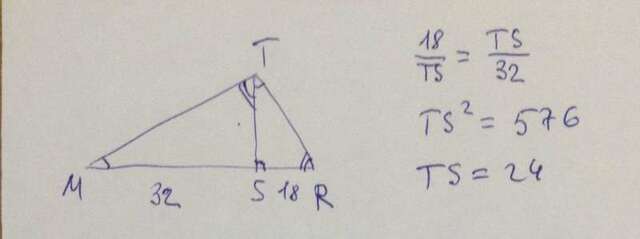 T
M 32 S 18 R
18/TS = TS/32
TS² = 576
TS = 24